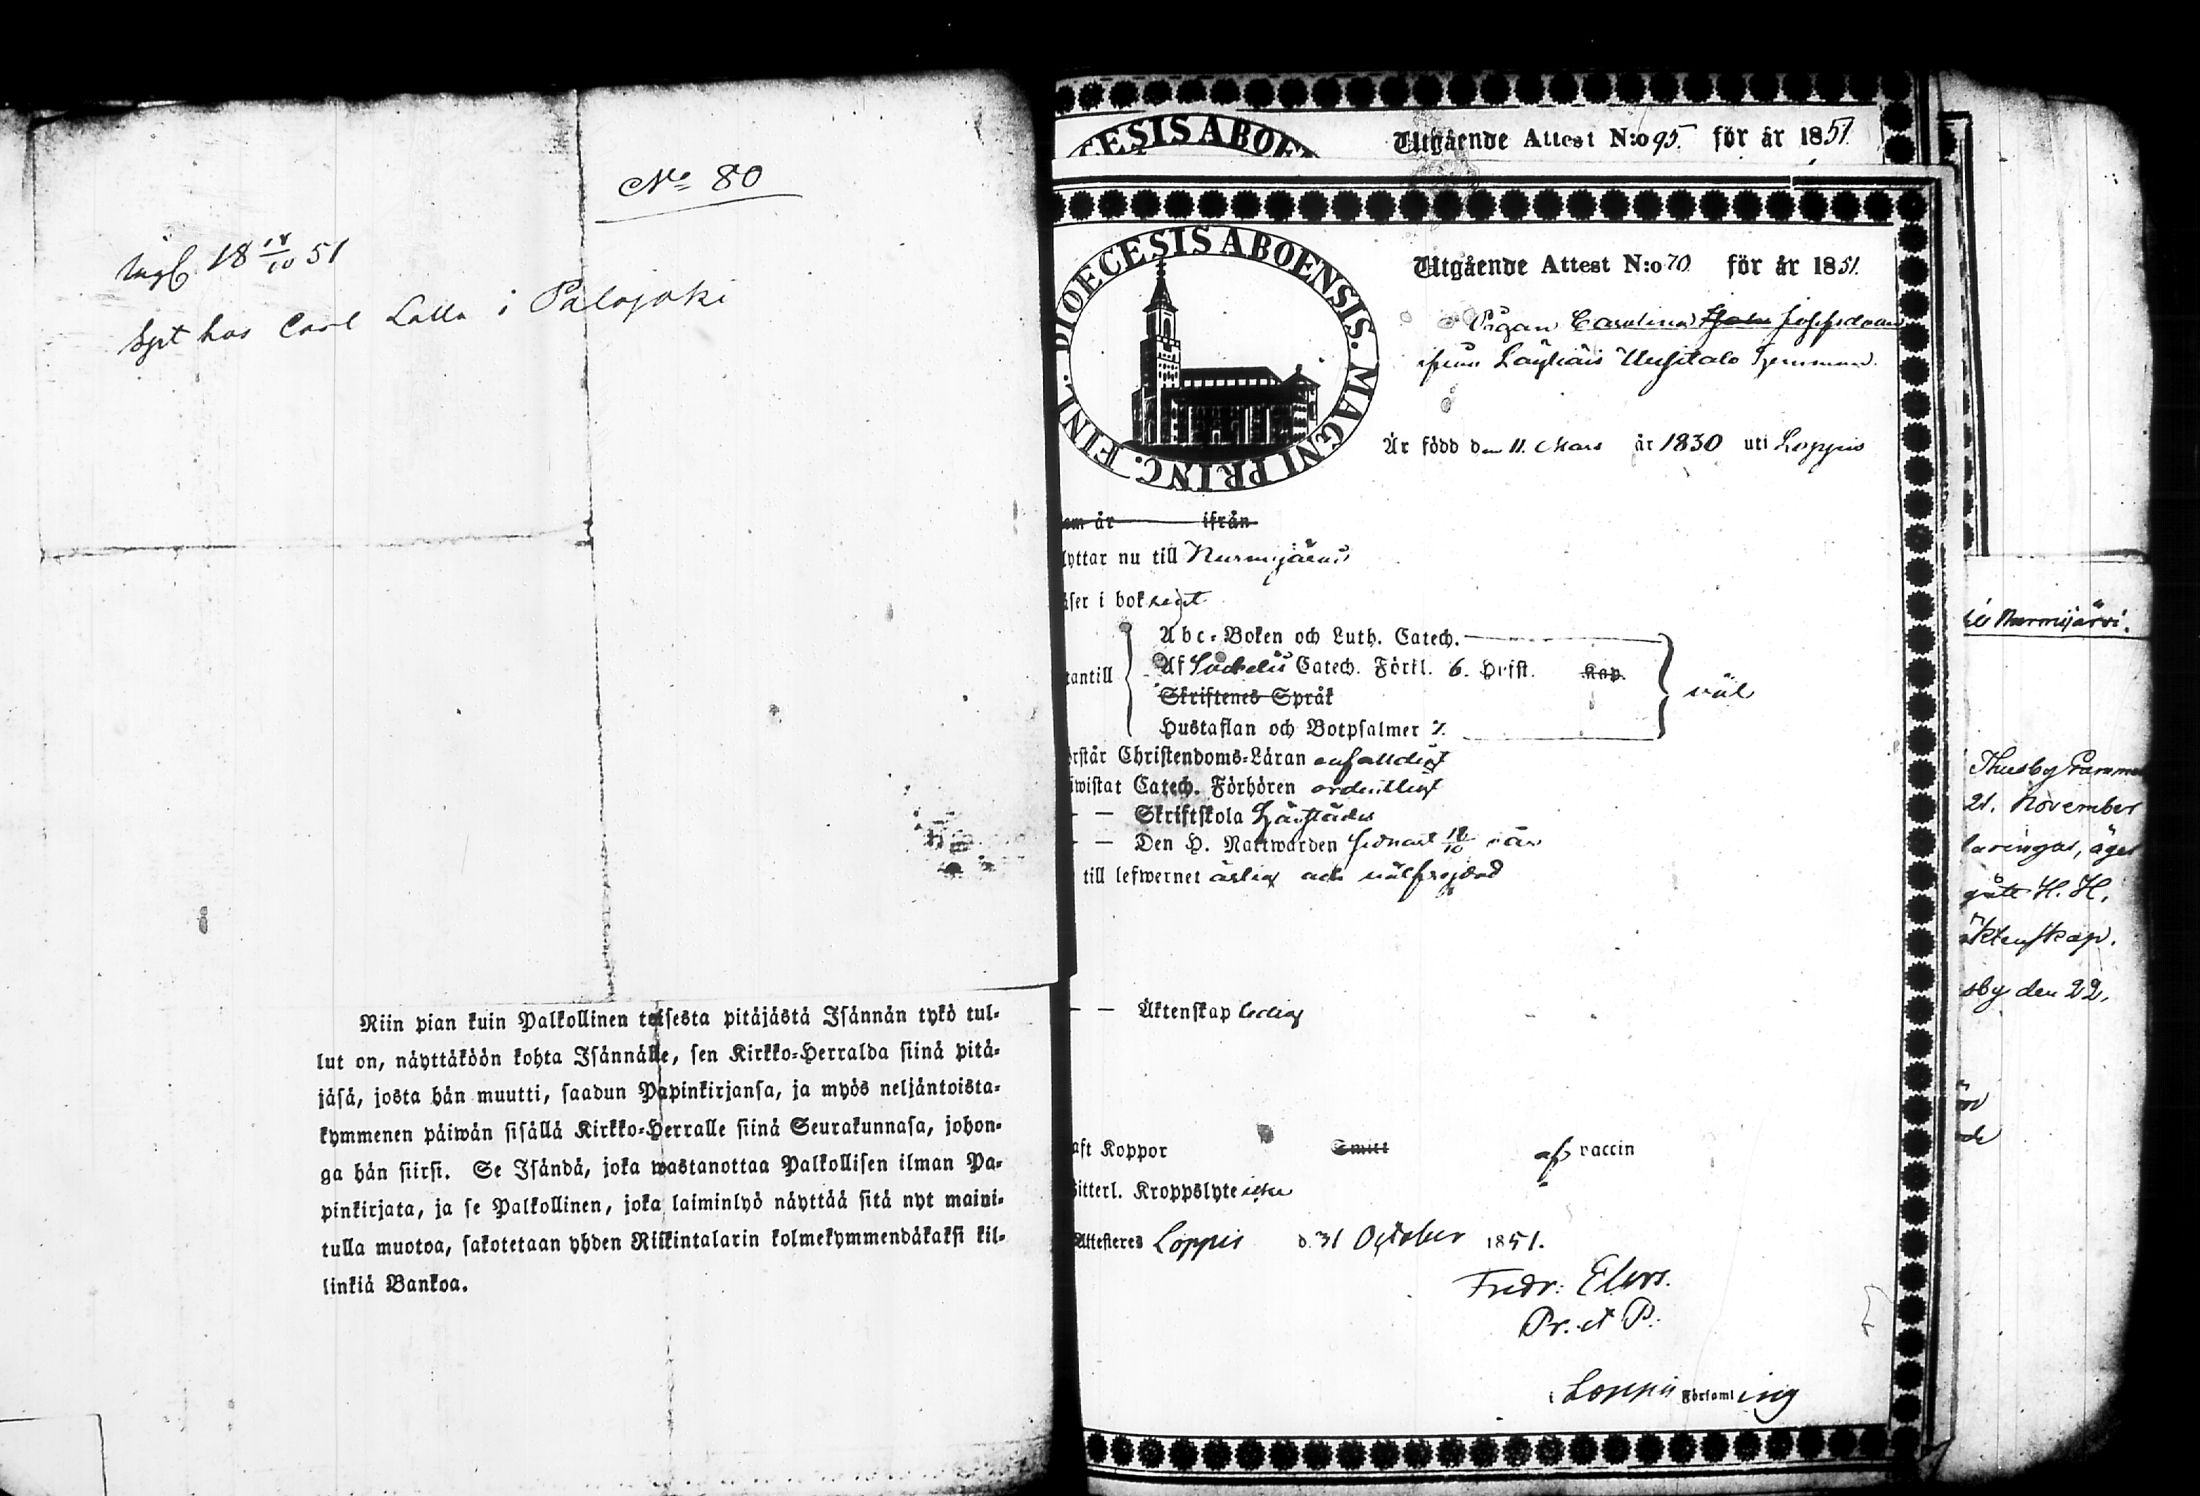 No 80
18 18/10 51
hos Carl Lalla i Palojoki
Niin pian kuin Palkollinen toisesta pitäjästä Isännän tykö tul-
lut on, näyttäköön kohta Isännälle, sen Kirkko-Herralda siinä pitä-
jäsä, josta hän muutti, saadun Papinkirjansa, ja myös neljäntoista-
kymmenen päiwän sisällä Kirkko-Herralle siinä Seurakunnasa, johon-
ga hän siirsi. Se Isändä, joka wastanottaa Palkollisen ilman Pa-
pinkirjata, ja se Palkollinen, joka laiminlyö näyttää sitä nyt maini-
tulla muotoa, sakotetaan yhden Riikintalarin kolmekymmendäkaksi kil-
linkiä Bankoa.
CESIS ABOEN
Utgående Attest N:o 95. för år 1851
DIOECESIS ABOENSIS. MAGNI PRINC. FINL.
Utgående Attest N:o 70 för år 1851.
Pigan Carolina Josefsdotter
ifrån Läyliäis Uusitalo hemman.
Är född den 11. Mars år 1830 uti Loppis
om år ifrån
lyttar nu till Nurmijärvi
äser i bok rent
Abc-Boken och Luth. Catech.
tantill Af Svebelii Catech. Förkl. 6. Hrfst. Kap. väl
Skriftenes Språk
Hustaflan och Botpsalmer 7.
örstår Christendoms-Läran enfalldigt
iwistat Catech. Förhören ordentligt
— Skriftskola härstädes
— Den H. Nattwarden sednast 18/10 i år
till lefwernet ärlig och välfrejdad
— — Äktenskap ledig
aft Koppor Smitt af vaccin
itterl. Kroppslyte icke
Attesteres Loppis d. 31 October 1851.
Fredr: Elers.
Pr. et P.
i Loppis Församling
Nurmijärvi.
Thusby
21. November
laringar, äger
gått H. H.
äktenskap.
sby den 22.